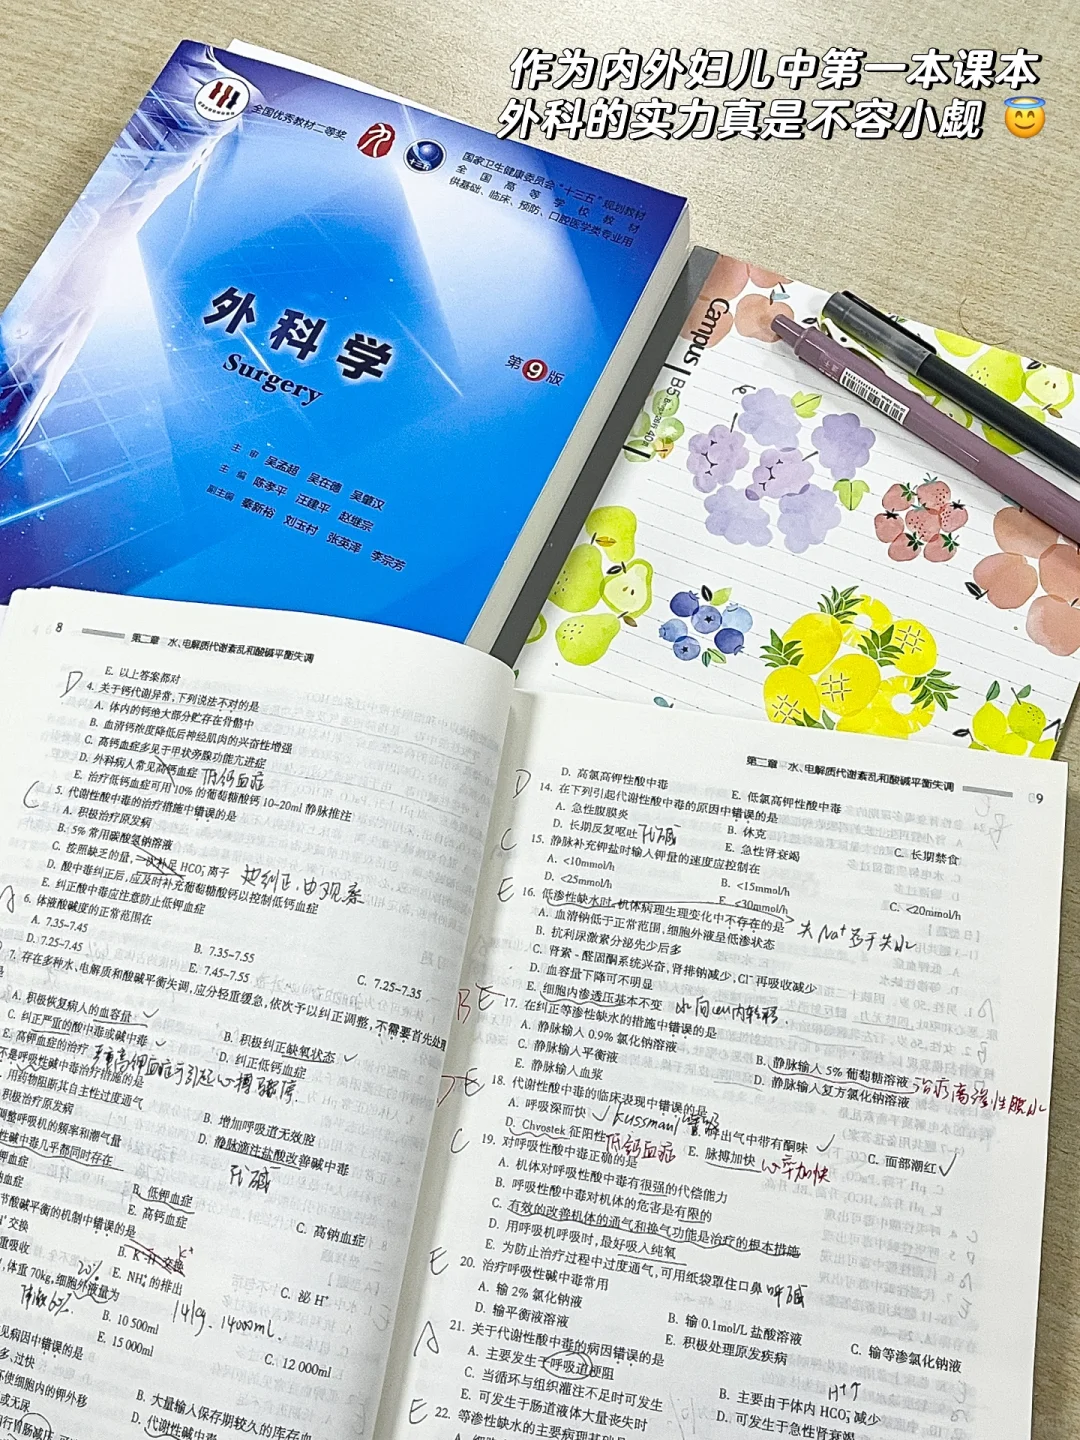 作为内外妇儿中第一本课本
外科的实力真是不容小觑 😇
全国优秀教材二等奖
十三五
国家卫生健康委员会“十三五”规划教材
全国高等学校教材
供基础、临床、预防、口腔医学类专业用
外科学
Surgery
第9版
主审 吴孟超 吴在德 吴肇汉
主编 陈孝平 汪建平 赵继宗
副主编 秦新裕 刘玉村 张英泽 李宗芳
Campus
B5
8 第二章 水、电解质代谢紊乱和酸碱平衡失调
E. 以上答案都对
D 4. 关于钙代谢异常,下列说法不对的是
A. 体内的钙绝大部分贮存在骨骼中
B. 血清钙浓度降低后神经肌肉的兴奋性增强
C. 高钙血症多见于甲状旁腺功能亢进症
D. 外科病人常见高钙血症 低钙血症
E. 治疗低钙血症可用10%的葡萄糖酸钙10~20ml静脉推注
C 5. 代谢性酸中毒的治疗措施中错误的是
A. 积极治疗原发病
B. 5%常用碳酸氢钠溶液
C. 按照缺乏的量,一次补足HCO₃⁻离子 边纠正,由观察
D. 酸中毒纠正后,应及时补充葡萄糖酸钙以控制低钙血症
E. 纠正酸中毒应注意防止低钾血症
A 6. 体液酸碱度的正常范围在
A. 7.35~7.45
B. 7.35~7.55
C. 7.25~7.35
D. 7.25~7.45
E. 7.45~7.55
7. 存在多种水、电解质和酸碱平衡失调,应分轻重缓急,依次予以纠正调整,不需要首先处理
A. 积极恢复病人的血容量
B. 积极纠正缺氧状态
C. 纠正严重的酸中毒或碱中毒
D. 纠正低钙血症
E. 高钾血症的治疗
不是呼吸性碱中毒治疗措施的是
用药物阻断其自主性过度通气
积极治疗原发病
B. 增加呼吸道无效腔
调整呼吸机的频率和潮气量
D. 静脉滴注盐酸改善碱中毒
代碱
性碱中毒几乎都同时存在
钾血症
B. 低钾血症
C. 高钠血症
E. 高钙血症
节酸碱平衡的机制中错误的是
交换
重吸收
C. 泌H⁺
E. NH₄⁺的排出
,体重70kg,细胞外液量为 20%
B. 10 500ml
14kg、14000ml
C. 12 000ml
E. 15 000ml
见病因中错误的是
多、过快
B. 大量输入保存期较久的库存血
坏使细胞内的钾外移
D. 代谢性碱中毒
或无尿
第二章 水、电解质代谢紊乱和酸碱平衡失调 9
D. 高氯高钾性酸中毒
E. 低氯高钾性酸中毒
D 14. 在下列引起代谢性酸中毒的原因中错误的是
A. 急性腹膜炎
B. 休克
C. 长期禁食
D. 长期反复呕吐 代碱
E. 急性肾衰竭
C 15. 静脉补充钾盐时输入钾量的速度应控制在
A. <10mmol/h
B. <15mmol/h
C. <20mmol/h
D. <25mmol/h
E. <30mmol/h
E 16. 低渗性缺水时,机体病理生理变化中不存在的是 失Na⁺多于失水
A. 血清钠低于正常范围,细胞外液呈低渗状态
B. 抗利尿激素分泌先少后多
C. 肾素-醛固酮系统兴奋,肾排钠减少,Cl⁻再吸收减少
D. 血容量下降可不明显
E. 细胞内渗透压基本不变 水向cell内转移
BE 17. 在纠正等渗性缺水的措施中错误的是
A. 静脉输入0.9%氯化钠溶液
B. 静脉输入5%葡萄糖溶液 治疗高渗性脱水
C. 静脉输入平衡液
D. 静脉输入复方氯化钠溶液
E. 静脉输入血浆
DE 18. 代谢性酸中毒的临床表现中错误的是
A. 呼吸深而快 Kussmaul
B. 呼出气中带有酮味
C. 面部潮红
D. Chvostek征阳性 低钙血症
E. 脉搏加快 心率加快
C 19. 对呼吸性酸中毒正确的是
A. 机体对呼吸性酸中毒有很强的代偿能力
B. 呼吸性酸中毒对机体的危害是有限的
C. 有效的改善机体的通气和换气功能是治疗的根本措施
D. 用呼吸机呼吸时,最好吸入纯氧
E. 为防止治疗过程中过度通气,可用纸袋罩住口鼻 呼碱
E 20. 治疗呼吸性碱中毒常用
A. 输2%氯化钠液
B. 输0.1mol/L盐酸溶液
C. 输等渗氯化钠液
D. 输平衡液溶液
E. 积极处理原发疾病
A 21. 关于代谢性酸中毒的病因错误的是
A. 主要发生于呼吸道梗阻
B. 主要由于体内HCO₃⁻减少 H⁺↑
C. 当循环与组织灌注不足时可发生
D. 可发生于急性肾衰竭
E. 可发生于肠道液体大量丧失时
E 22. 等渗性缺水的主要病理基础是